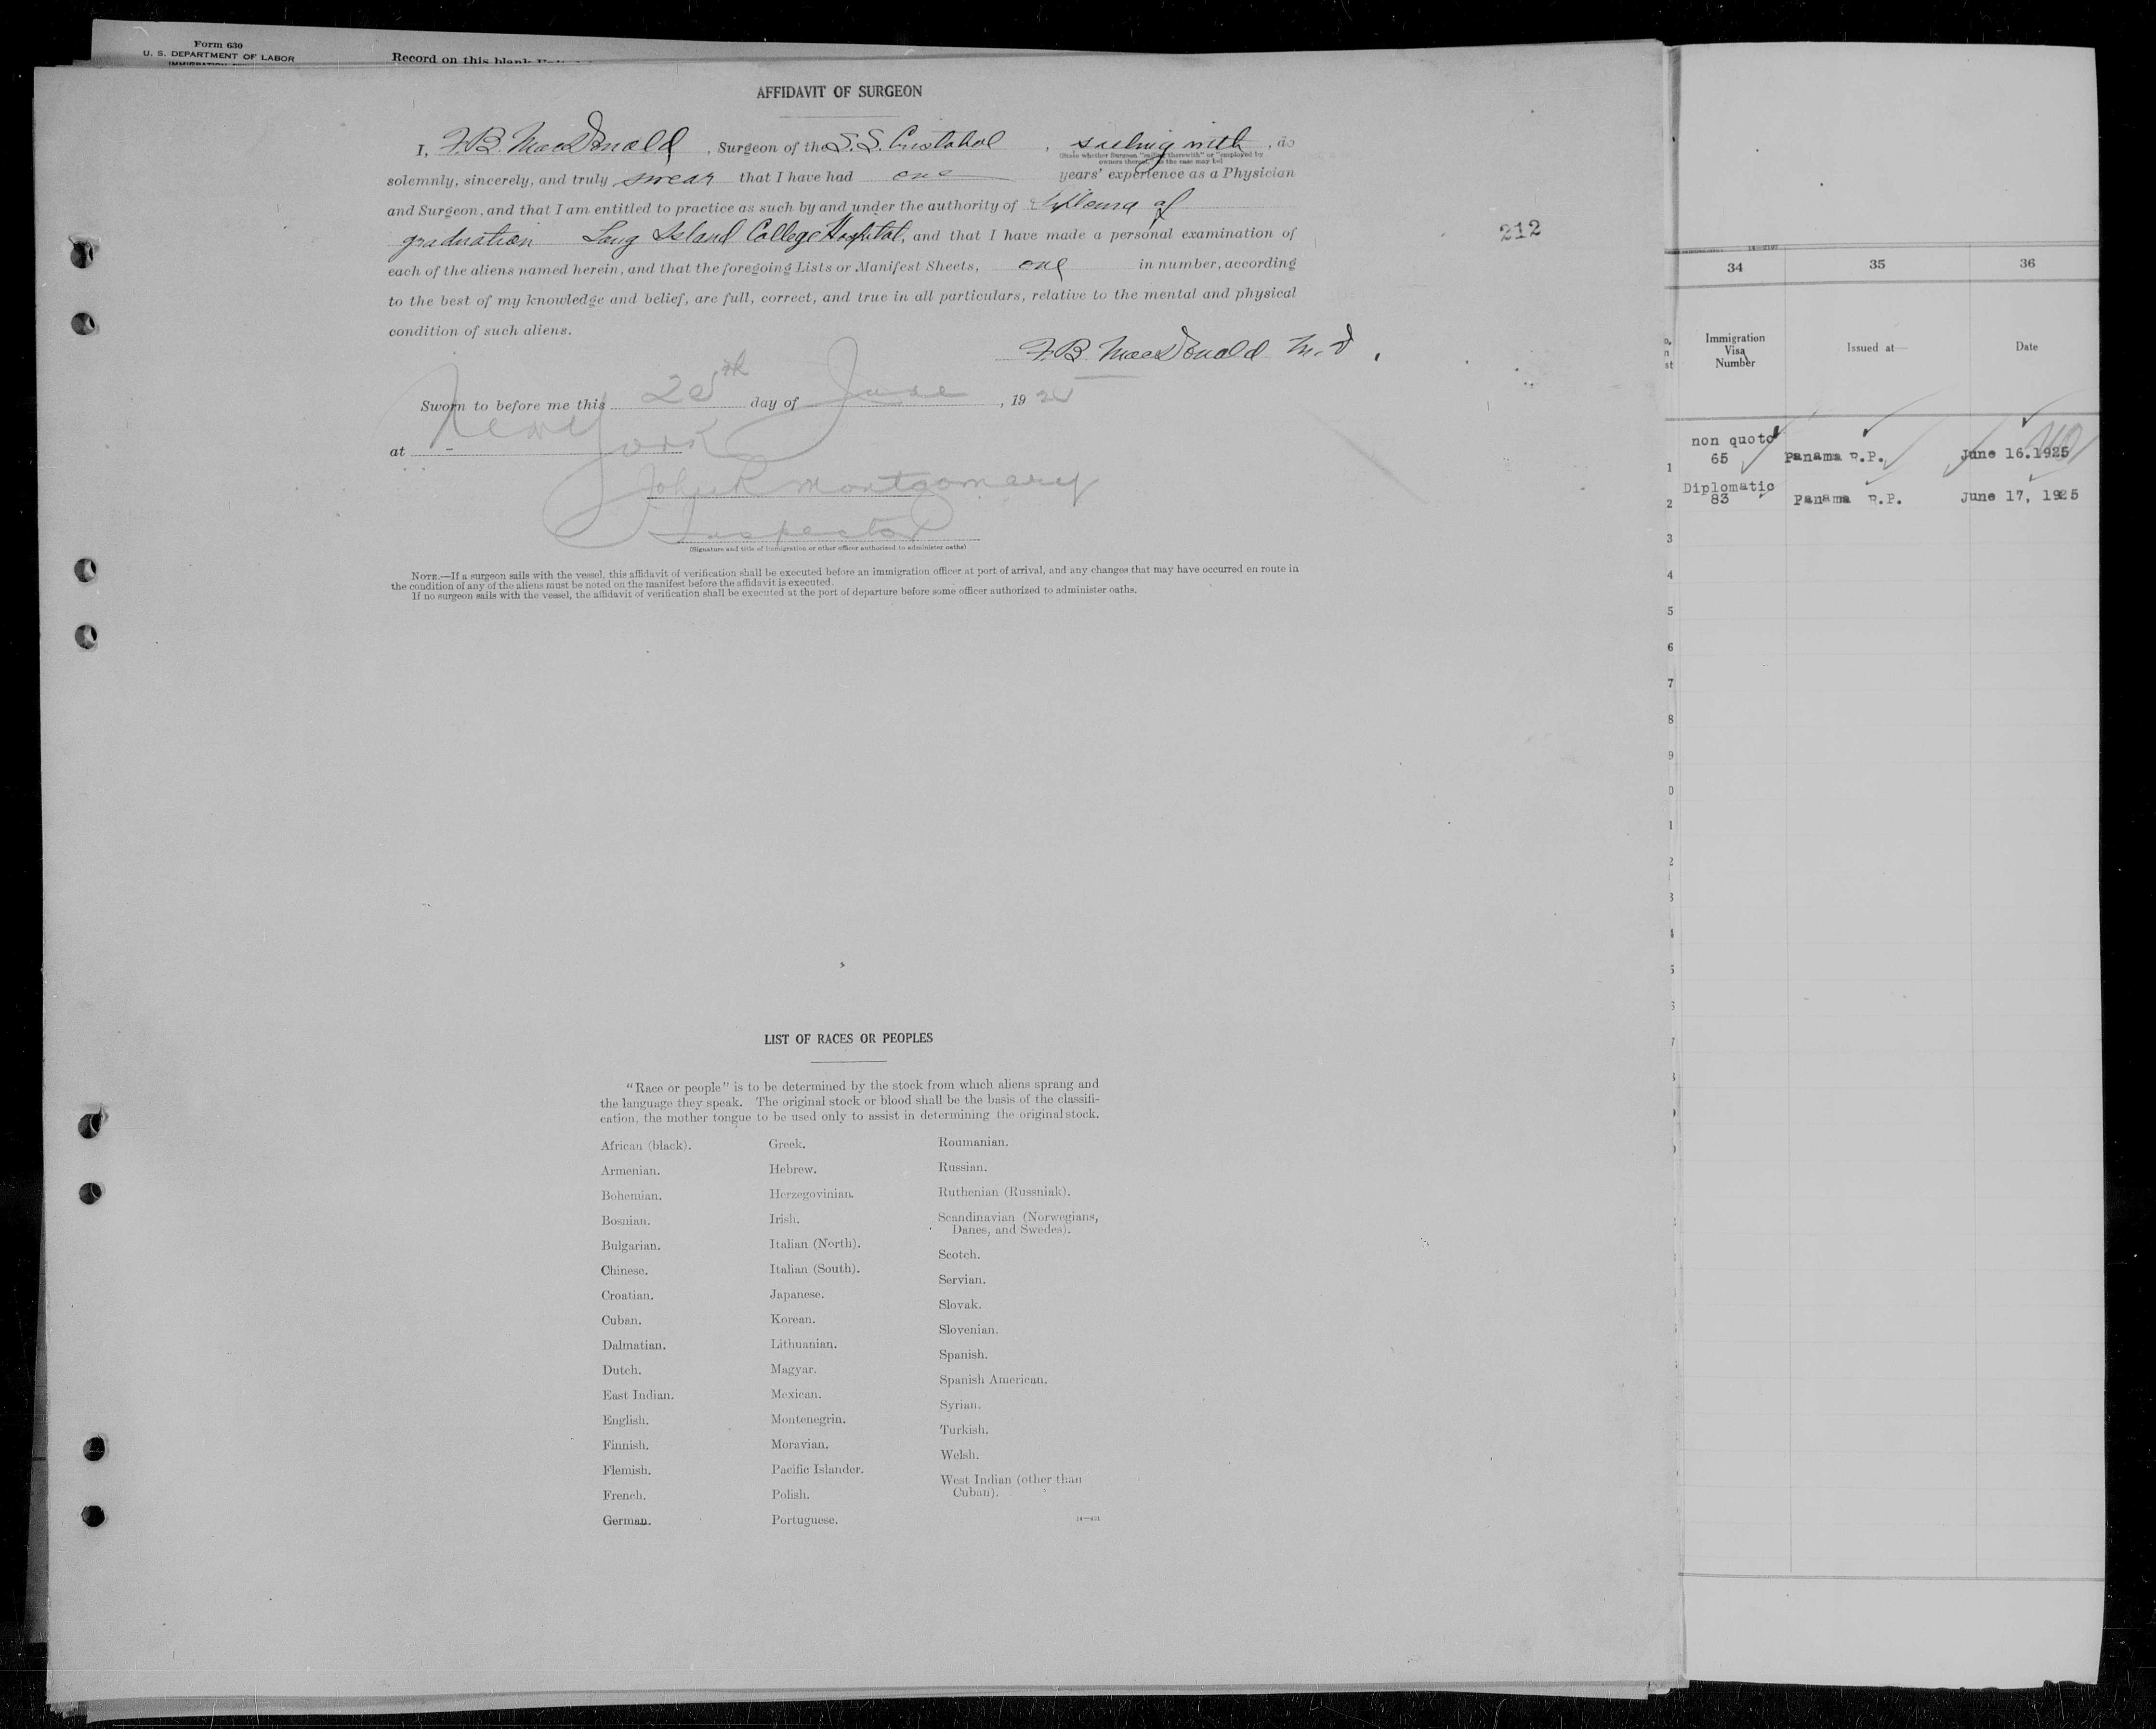 Form 630
U. S. DEPARTMENT OF LABOR
Record on this blank
AFFIDAVIT OF SURGEON
I, F.B. MacDonald, Surgeon of the S.S. Cristobal, sailing with, do
(State whether Surgeon "sailing therewith" or "employed by
owners thereof," as the case may be)
solemnly, sincerely, and truly swear that I have had one years' experience as a Physician
and Surgeon, and that I am entitled to practice as such by and under the authority of Diploma of
graduation Long Island College Hospital, and that I have made a personal examination of
each of the aliens named herein, and that the foregoing Lists or Manifest Sheets, one in number, according
to the best of my knowledge and belief, are full, correct, and true in all particulars, relative to the mental and physical
condition of such aliens.
F.B. MacDonald M.D.
Sworn to before me this day of June, 19
at New York
John R Montgomery
Inspector
(Signature and title of immigration or other officer authorized to administer oaths)
NOTE.—If a surgeon sails with the vessel, this affidavit of verification shall be executed before an immigration officer at port of arrival, and any changes that may have occurred en route in
the condition of any of the aliens must be noted on the manifest before the affidavit is executed.
If no surgeon sails with the vessel, the affidavit of verification shall be executed at the port of departure before some officer authorized to administer oaths.
212
LIST OF RACES OR PEOPLES
"Race or people" is to be determined by the stock from which aliens sprang and
the language they speak. The original stock or blood shall be the basis of the classifi-
cation, the mother tongue to be used only to assist in determining the original stock.
African (black).
Armenian.
Bohemian.
Bosnian.
Bulgarian.
Chinese.
Croatian.
Cuban.
Dalmatian.
Dutch.
East Indian.
English.
Finnish.
Flemish.
French.
German.
Greek.
Hebrew.
Herzegovinian.
Irish.
Italian (North).
Italian (South).
Japanese.
Korean.
Lithuanian.
Magyar.
Mexican.
Montenegrin.
Moravian.
Pacific Islander.
Polish.
Portuguese.
Roumanian.
Russian.
Ruthenian (Russniak).
Scandinavian (Norwegians,
Danes, and Swedes).
Scotch.
Servian.
Slovak.
Slovenian.
Spanish.
Spanish American.
Syrian.
Turkish.
Welsh.
West Indian (other than
Cuban).
34 35 36
Immigration
Visa
Number
Issued at—
Date
non quota
1 65 Panama R.P. June 16.1925
Diplomatic
2 83 Panama R.P. June 17, 1925
3
4
5
6
7
8
9